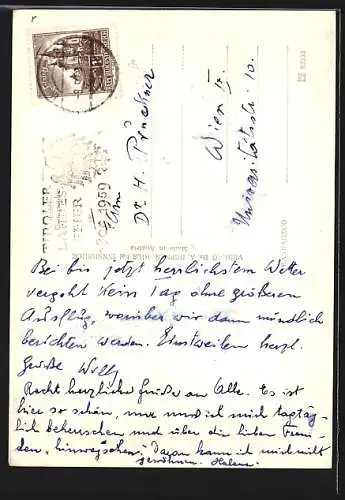 TIROLER
LANDES
FEIER
1959
Dr. H. Prückner
Wien IX.
Universitätsstr. 10.
INNSBRUCK
Made in Austria
Bei bis jetzt herrlichstem Wetter
vergeht kein Tag ohne größeren
Ausflug, worüber wir dann mündlich
berichten werden. Einstweilen herzl.
Grüße Willy
Recht herzliche Grüße an Alle. Es ist
hier so schön, nur muß ich mich tagtäg-
lich beherrschen und über die lieben Frem-
den "hinwegsehen". Daran kann ich mich nicht
gewöhnen. Helene.